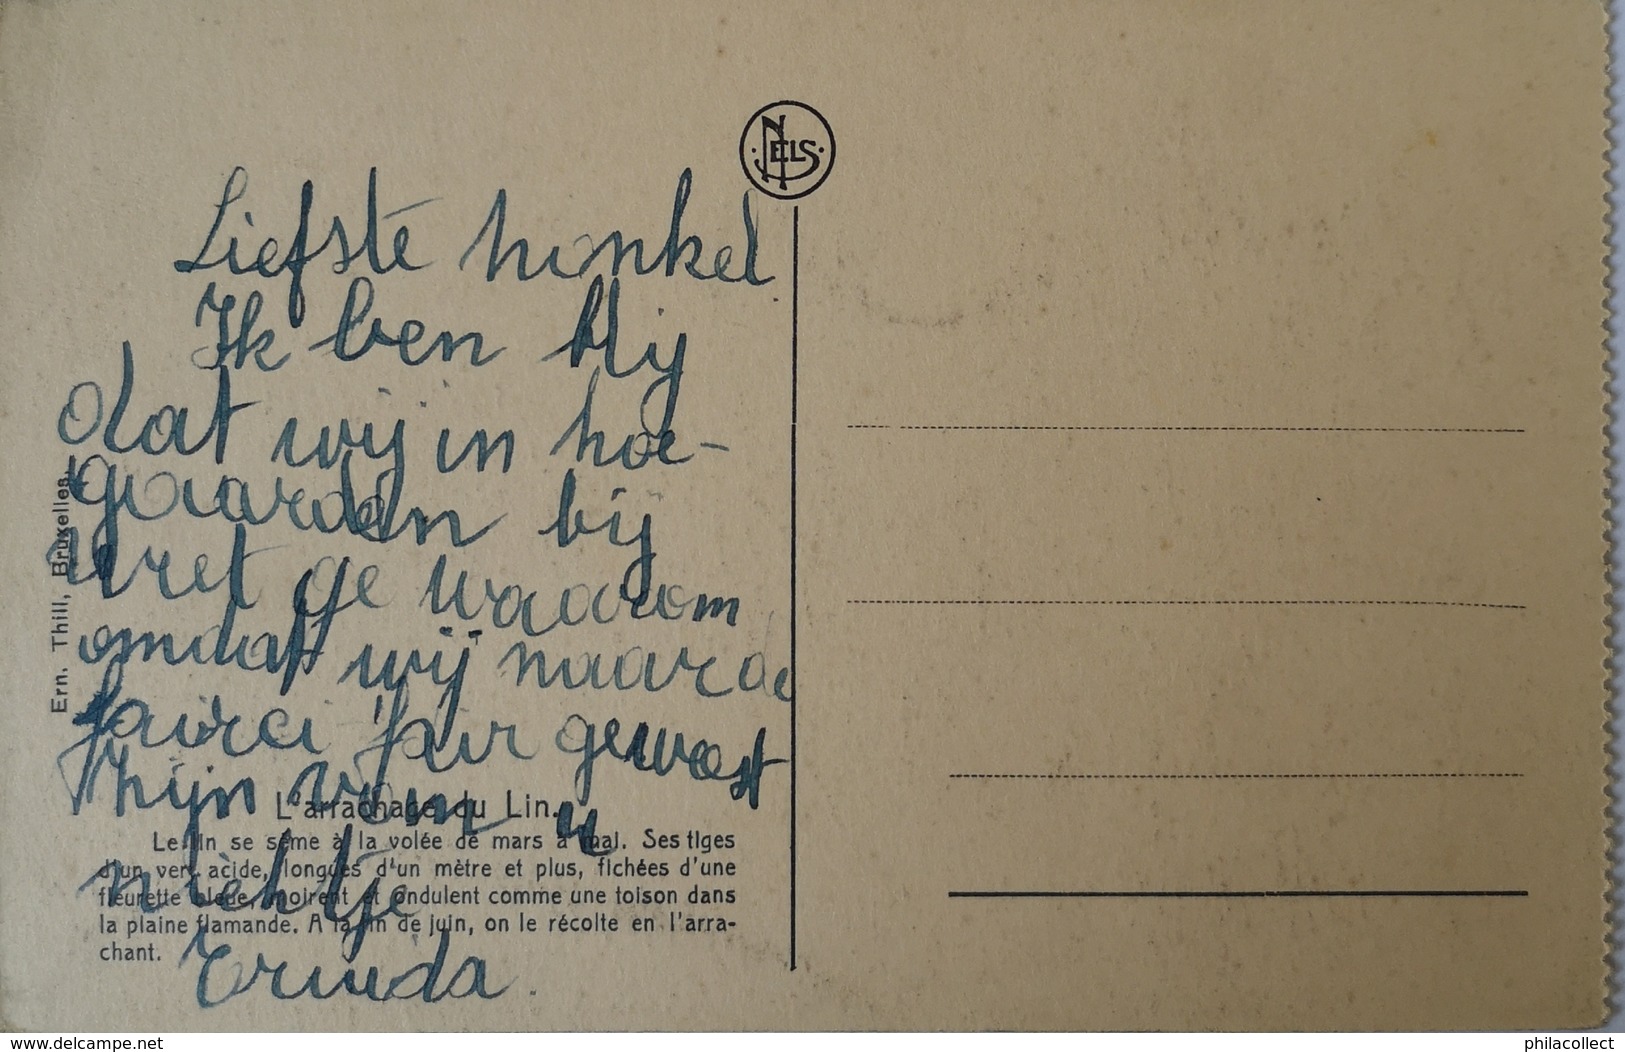 NELS
Liefste nonkel
Ik ben blij
dat wij in hoe-
gaarden bij
wret ge waarom
omdat wij naar de
gewest
zijn van u
nichtje
Ern. Thill, Bruxelles.
L'arrachage du Lin.
Le lin se sème à la volée de mars à mai. Ses tiges
d'un vert acide, longues d'un mètre et plus, fichées d'une
fleurette bleue, moirent et ondulent comme une toison dans
la plaine flamande. A la fin de juin, on le récolte en l'arra-
chant.
delcampe.net
philacollect